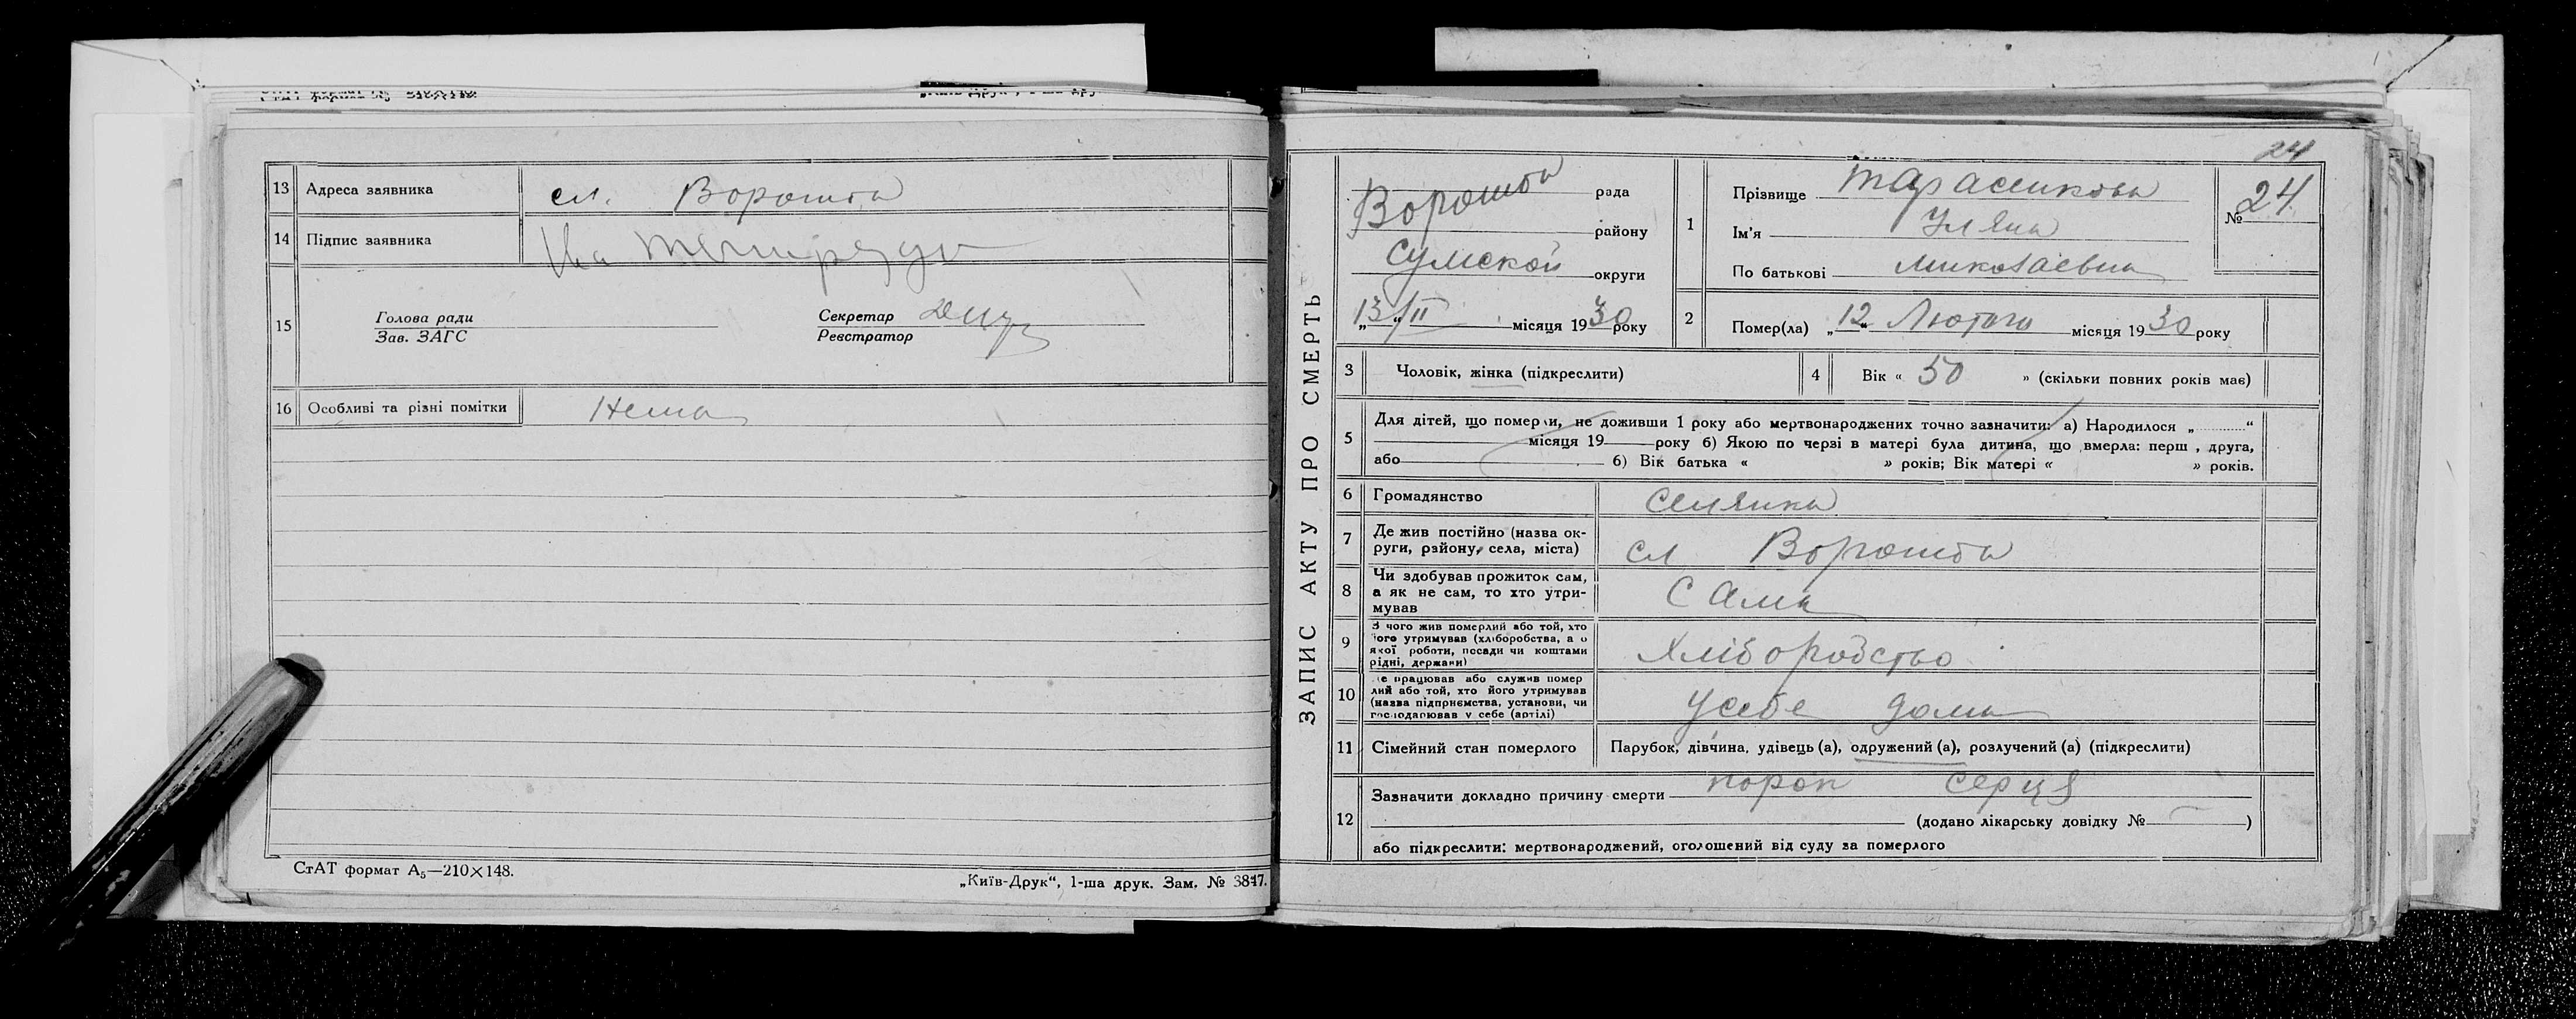 13 Адреса заявника сл. Ворожба
14 Підпис заявника
15 Голова ради
Зав. ЗАГС
Секретар
Реєстратор
16 Особливі та різні помітки Нема
СтАТ формат А₅—210×148.
„Київ-Друк“, 1-ша друк. Зам. № 3847.
24
ЗАПИС АКТУ ПРО СМЕРТЬ
Ворожба рада
району
Сумской округи
„13“/II місяця 1930 року
1 Прізвище Тарасенкова
Ім'я Уляна
По батькові Миколаевна
№ 24
2 Помер(ла) „12“ Лютого місяця 1930 року
3 Чоловік, жінка (підкреслити)
4 Вік « 50 » (скільки повних років має)
5 Для дітей, що померли, не доживши 1 року або мертвонароджених точно зазначити: а) Народилося „ “
місяця 19 року б) Якою по черзі в матері була дитина, що вмерла: перш , друга,
або б) Вік батька « » років; Вік матері « » років.
6 Громадянство Селянка
7 Де жив постійно (назва ок-
руги, району, села, міста) сл Ворожба
8 Чи здобував прожиток сам,
а як не сам, то хто утри-
мував Сама
9 З чого жив померлий або той, хто
його утримував (хліборобства, а о
якої роботи, посади чи коштами
рідні, держави) Хліборобство
10 Де працював або служив помер
лий або той, хто його утримував
(назва підприємства, установи, чи
господарював у себе (артілі) Усебе дома
11 Сімейний стан померлого Парубок, дівчина, удівець (а), одружений (а), розлучений (а) (підкреслити)
12 Зазначити докладно причину смерти порок серця
(додано лікарську довідку № — )
або підкреслити: мертвонароджений, оголошений від суду за померлого